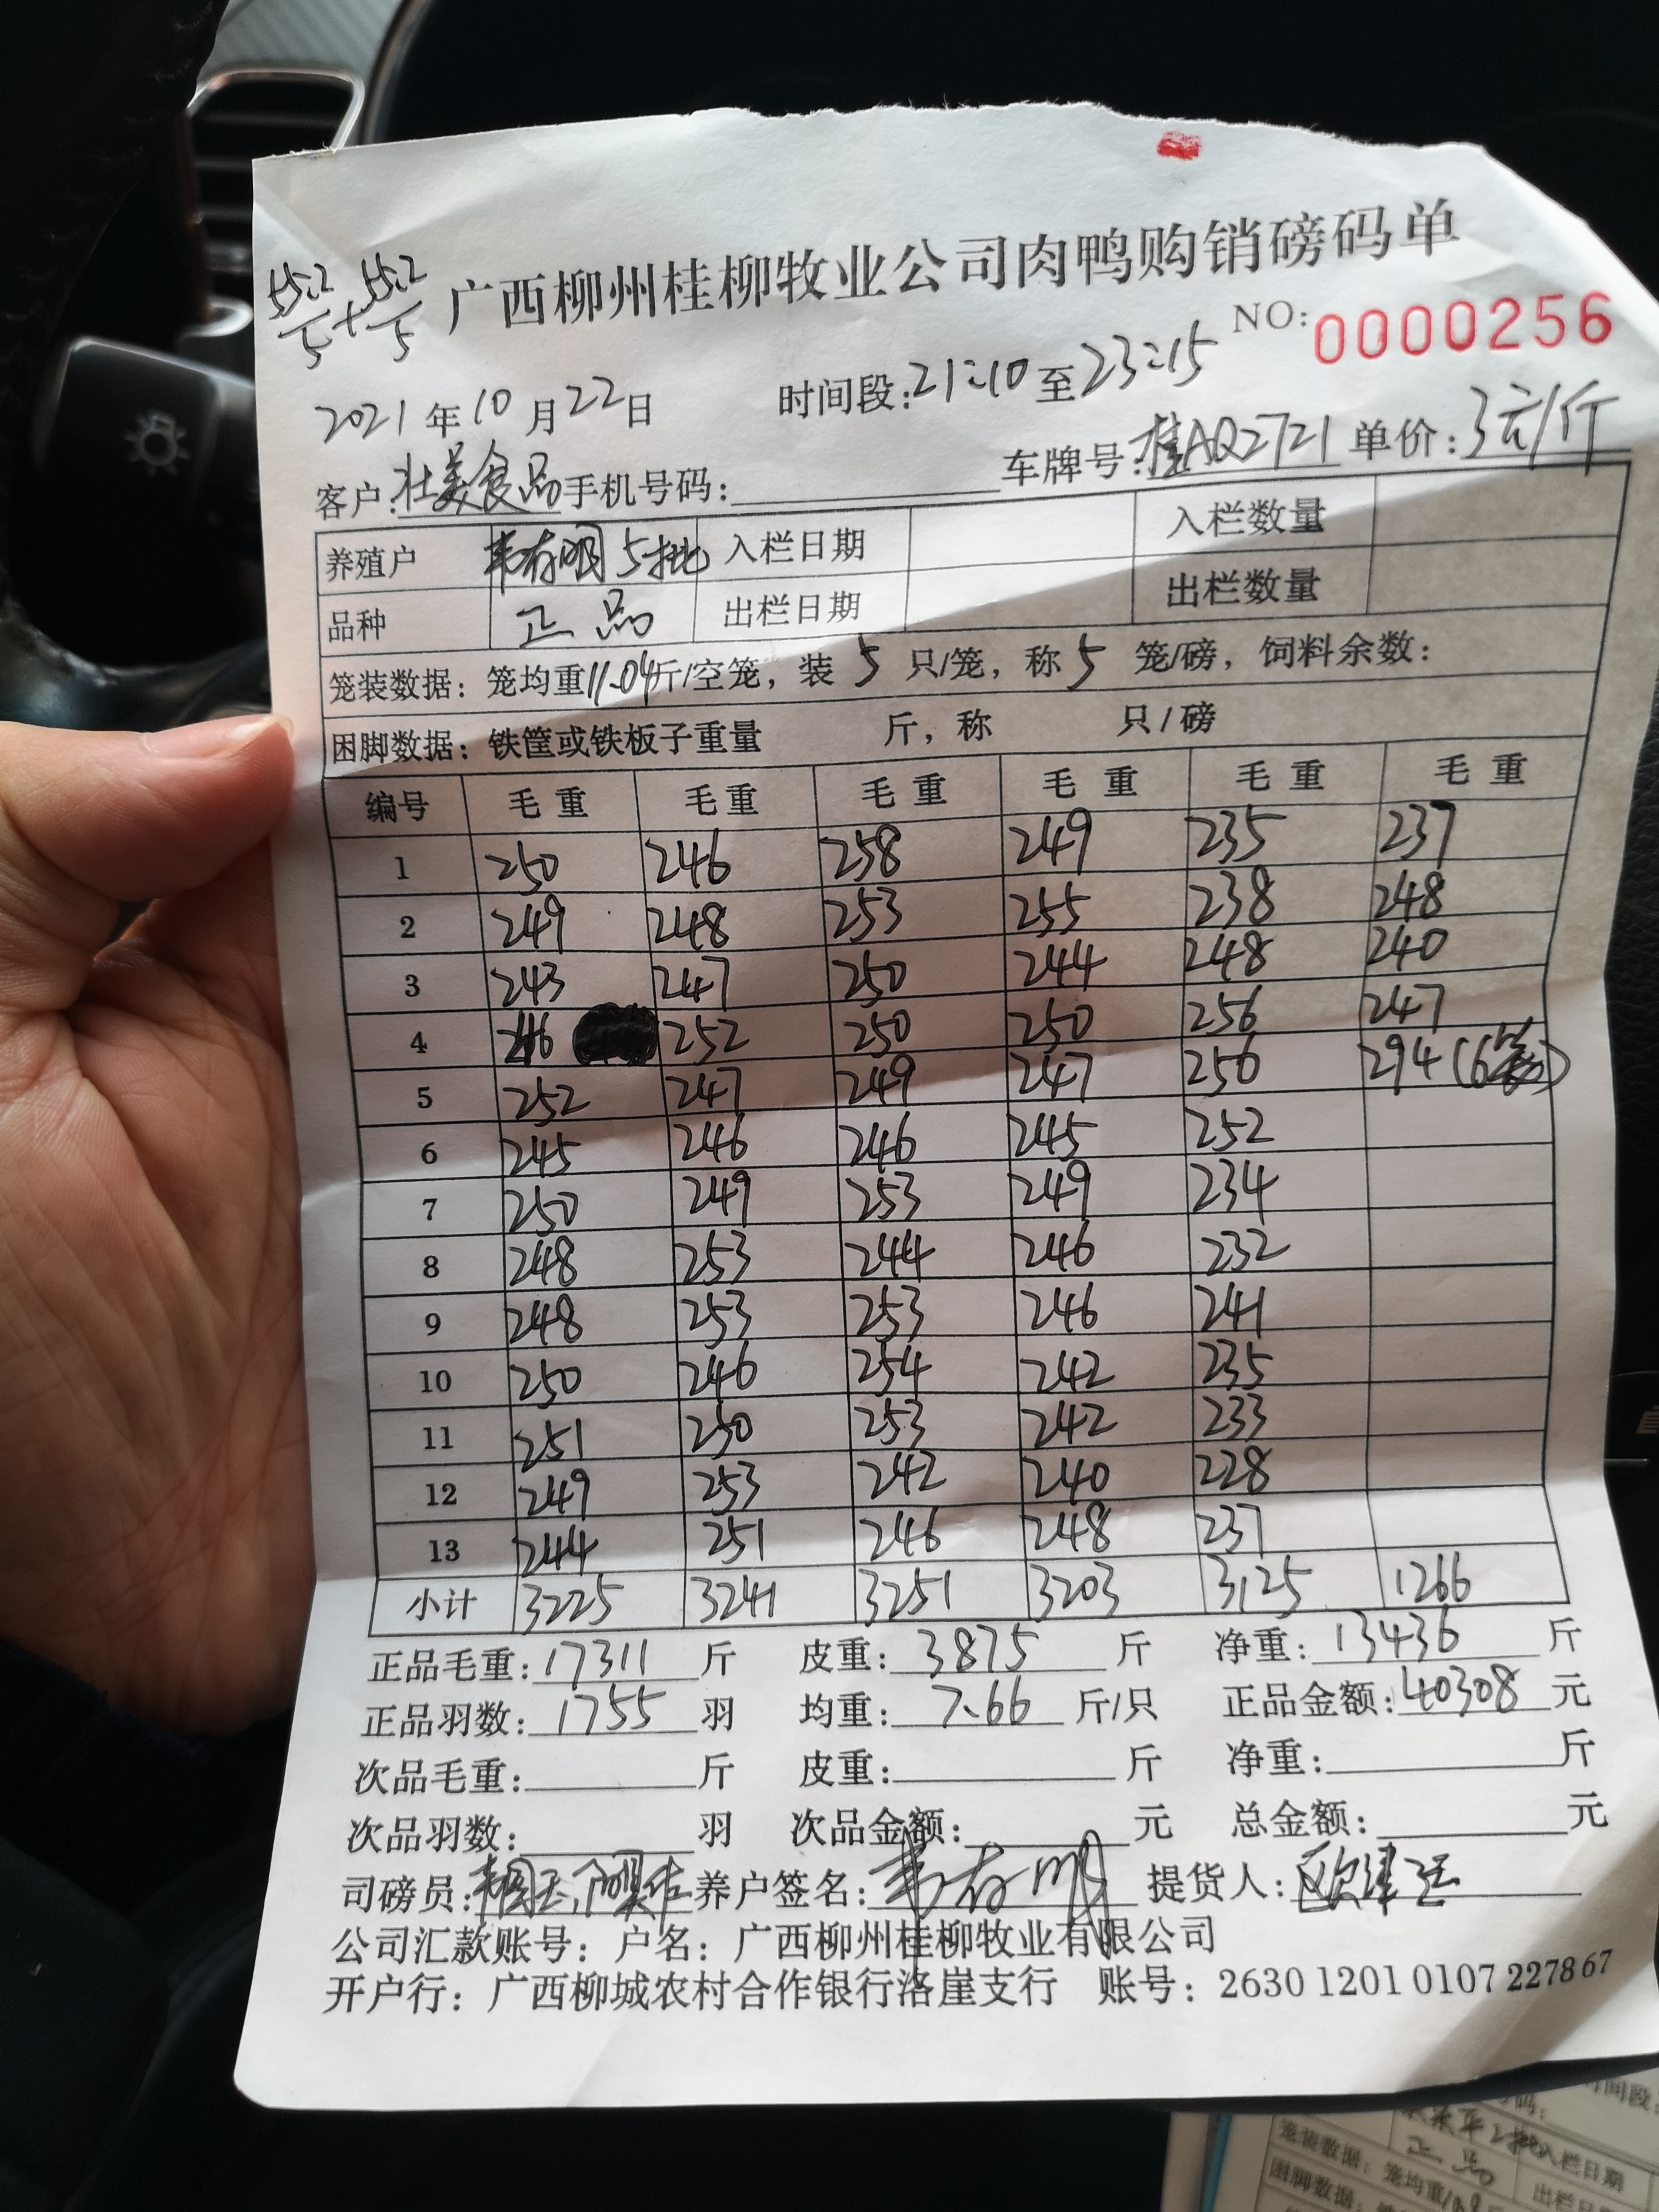 55.2/5 + 55.2/5
广西柳州桂柳牧业公司肉鸭购销磅码单
NO: 0000256
2021年10月22日 时间段:21:10至23:15
客户:壮美食品 手机号码: 车牌号:桂AQ2721 单价:3元/斤
养殖户 韦存明5批 入栏日期 入栏数量
品种 正品 出栏日期 出栏数量
笼装数据:笼均重11.04斤/空笼,装5只/笼,称5笼/磅,饲料余数:
困脚数据:铁筐或铁板子重量 斤,称 只/磅
编号 毛重 毛重 毛重 毛重 毛重 毛重
1 250 246 258 249 235 237
2 249 248 253 255 238 248
3 243 247 250 244 248 240
4 246 252 250 250 256 247
5 252 247 249 247 256 294(6笼)
6 245 246 246 245 252
7 250 249 253 249 234
8 248 253 244 246 232
9 248 253 253 246 241
10 250 246 254 242 235
11 251 250 253 242 233
12 249 253 242 240 228
13 244 251 246 248 237
小计 3225 3241 3251 3203 3125 1266
正品毛重:17311斤 皮重:3875斤 净重:13436斤
正品羽数:1755羽 均重:7.66斤/只 正品金额:40308元
次品毛重: 斤 皮重: 斤 净重: 斤
次品羽数: 羽 次品金额: 元 总金额: 元
司磅员: 养户签名:韦存明 提货人:
公司汇款账号:户名:广西柳州桂柳牧业有限公司
开户行:广西柳城农村合作银行洛崖支行 账号:2630 1201 0107 227867
时间段:
正品 入栏日期
笼装数据:笼均重
困脚数据: 出栏